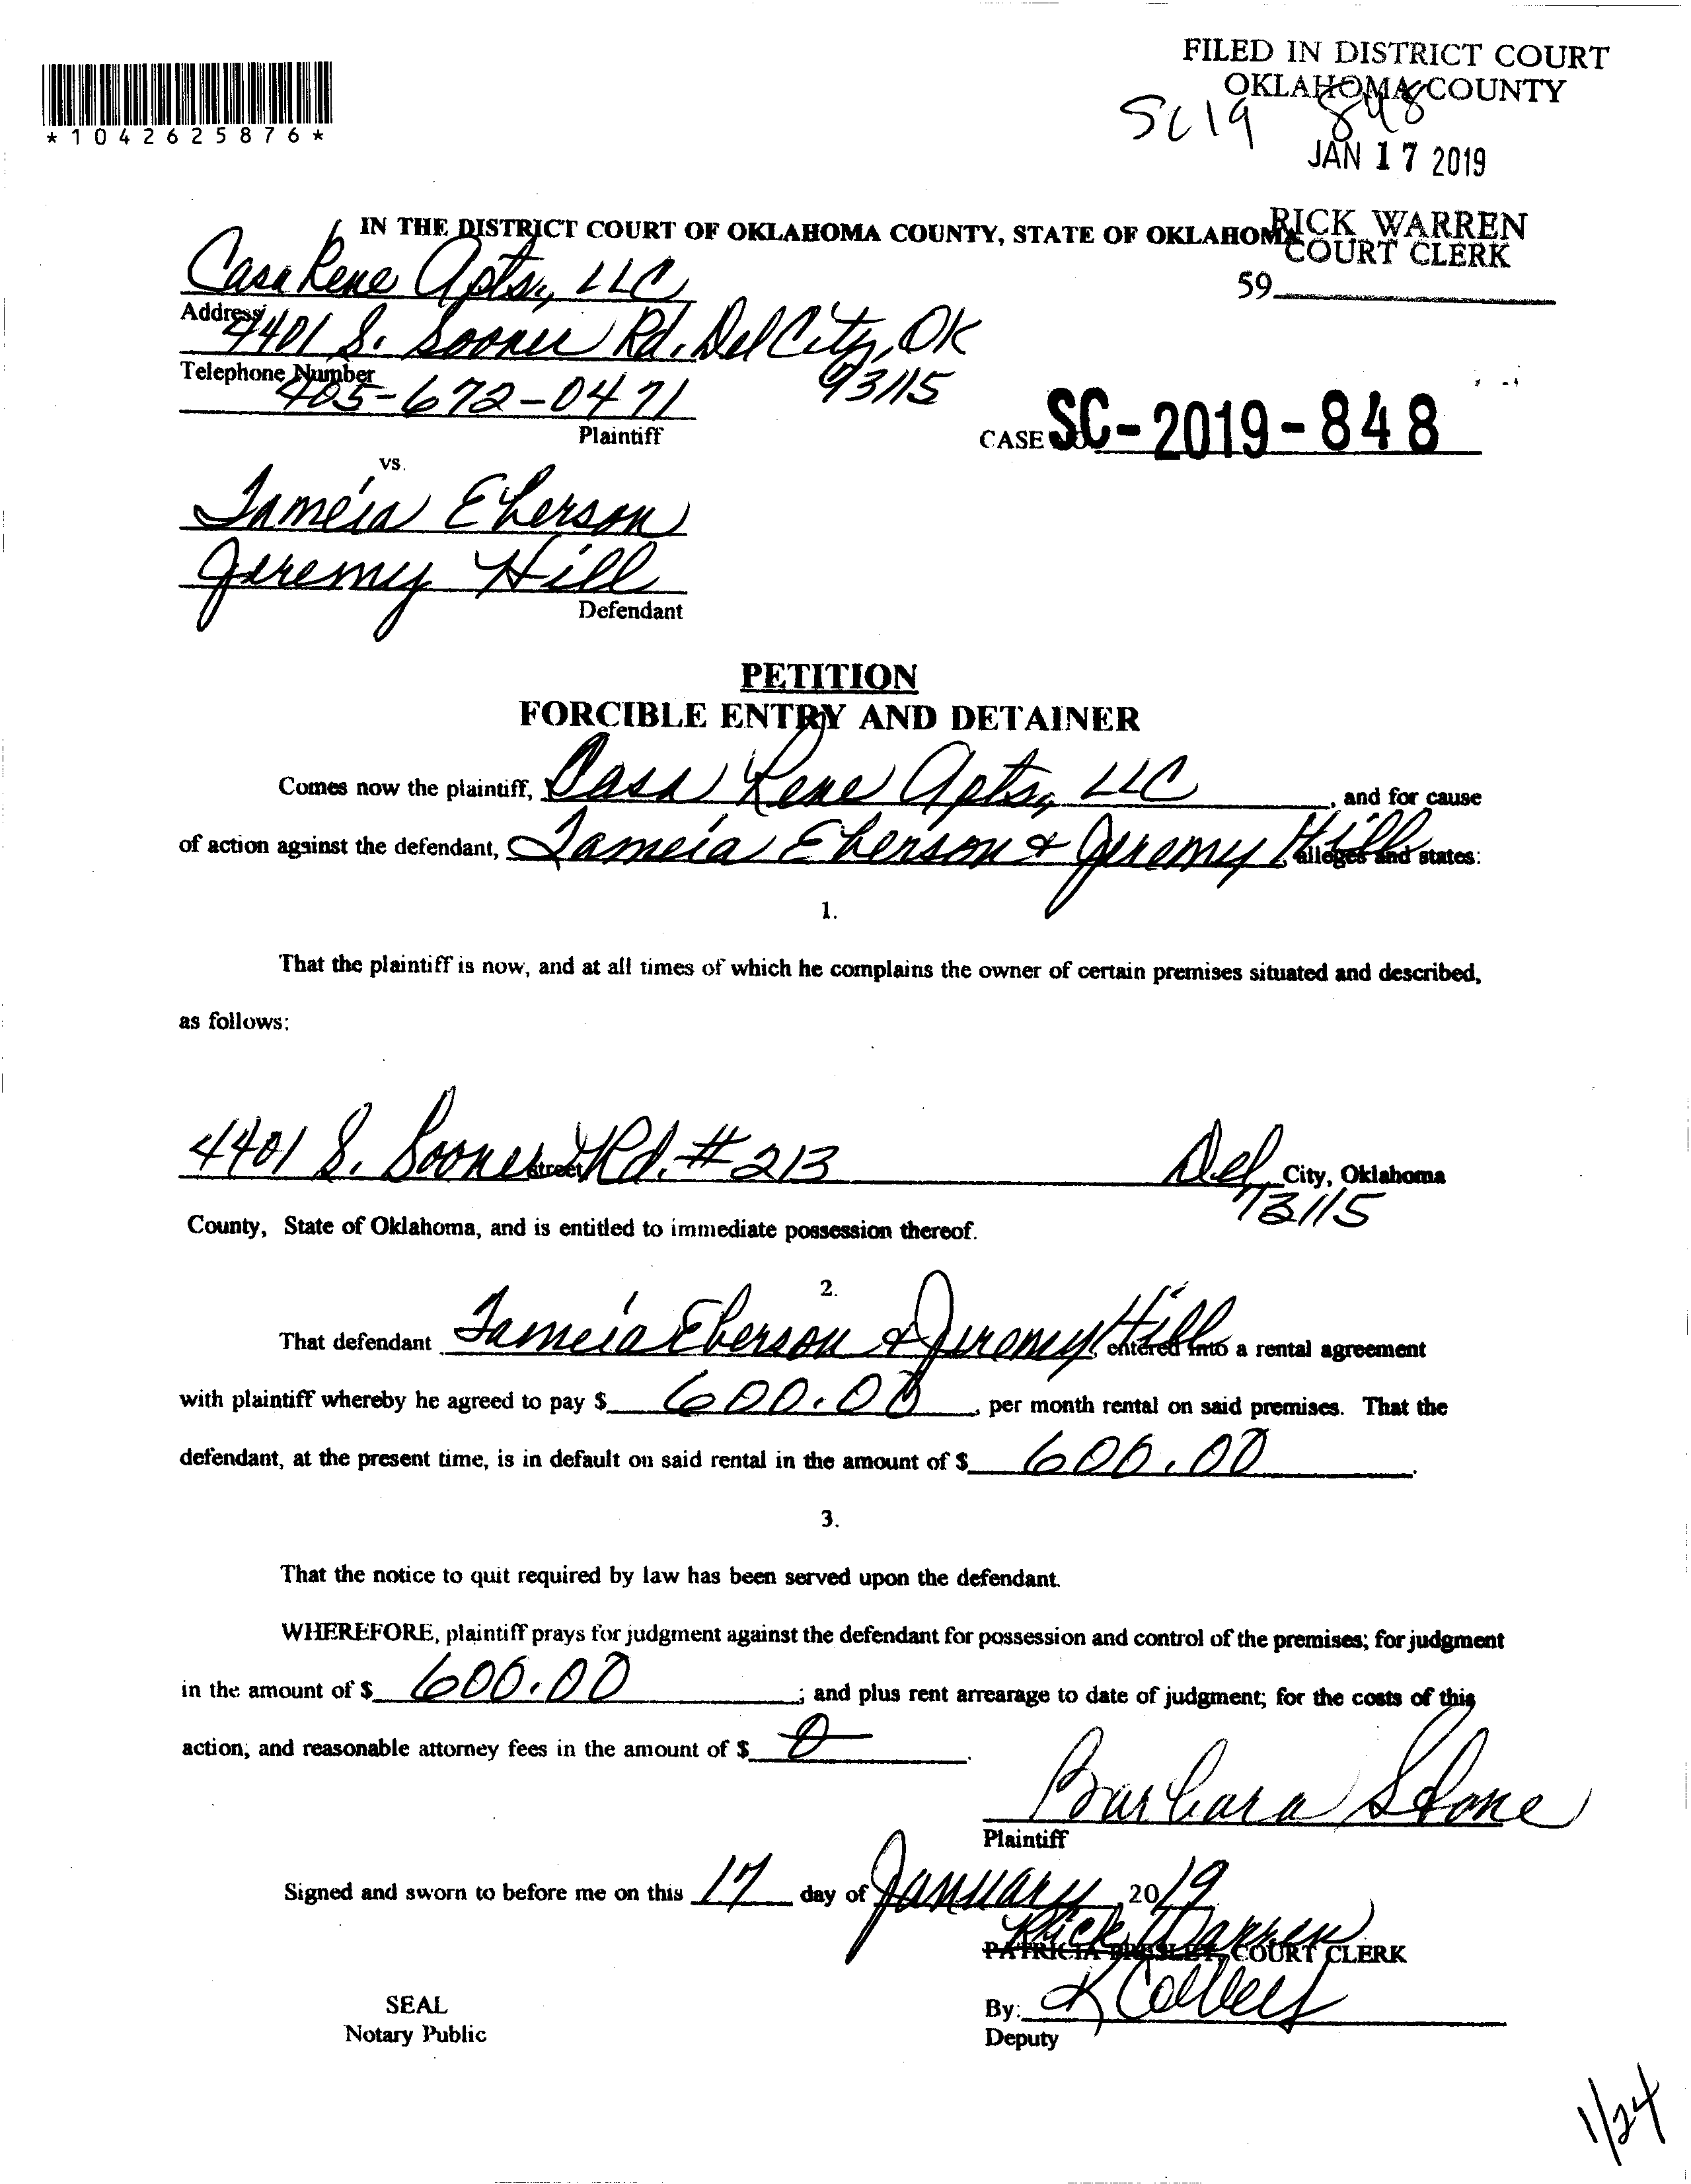 FILED IN DISTRICT COURT
OKLAHOMA COUNTY
SC19 848
JAN 17 2019
*1042625876*
IN THE DISTRICT COURT OF OKLAHOMA COUNTY, STATE OF OKLAHOMA
RICK WARREN
COURT CLERK
59
Casa Rene Apts, LLC
Address
4401 S. Sooner Rd. Del City, OK
73115
Telephone Number
405-672-0471
Plaintiff
CASE NO. SC-2019-848
vs.
Tameia Eberson
Jeremy Hill
Defendant
PETITION
FORCIBLE ENTRY AND DETAINER
Comes now the plaintiff, Casa Rene Apts, LLC, and for cause
of action against the defendant, Tameia Eberson & Jeremy Hill, alleges and states:
1.
That the plaintiff is now, and at all times of which he complains the owner of certain premises situated and described,
as follows:
4401 S. Sooner Rd. #213 street Del City, Oklahoma
73115
County, State of Oklahoma, and is entitled to immediate possession thereof.
2.
That defendant Tameia Eberson & Jeremy Hill entered into a rental agreement
with plaintiff whereby he agreed to pay $ 600.00, per month rental on said premises. That the
defendant, at the present time, is in default on said rental in the amount of $ 600.00.
3.
That the notice to quit required by law has been served upon the defendant.
WHEREFORE, plaintiff prays for judgment against the defendant for possession and control of the premises; for judgment
in the amount of $ 600.00; and plus rent arrearage to date of judgment; for the costs of this
action; and reasonable attorney fees in the amount of $ 0.
Barbara Stone
Plaintiff
Signed and sworn to before me on this 17 day of January, 2019
Rick Warren
PATRICIA PRESLEY, COURT CLERK
SEAL
Notary Public
By: K
Deputy
1/24